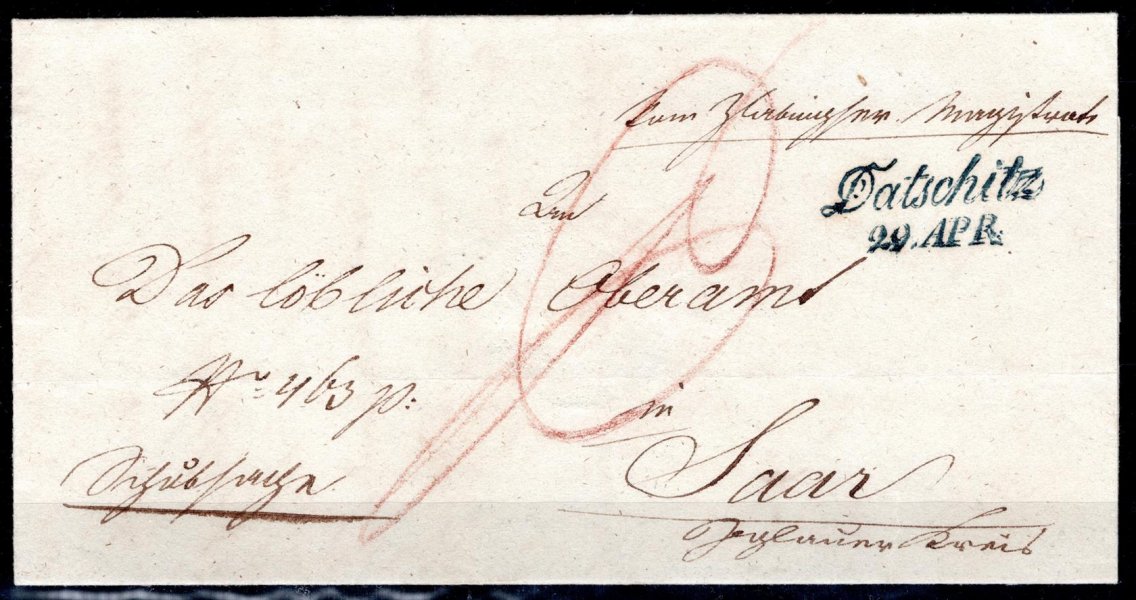 Vom Zlabingser Magistrat
Datschitz
29. APR.
An
Das löbliche Oberamt
No 463 p:
in
Schubsache
Saar
Iglauer Kreis